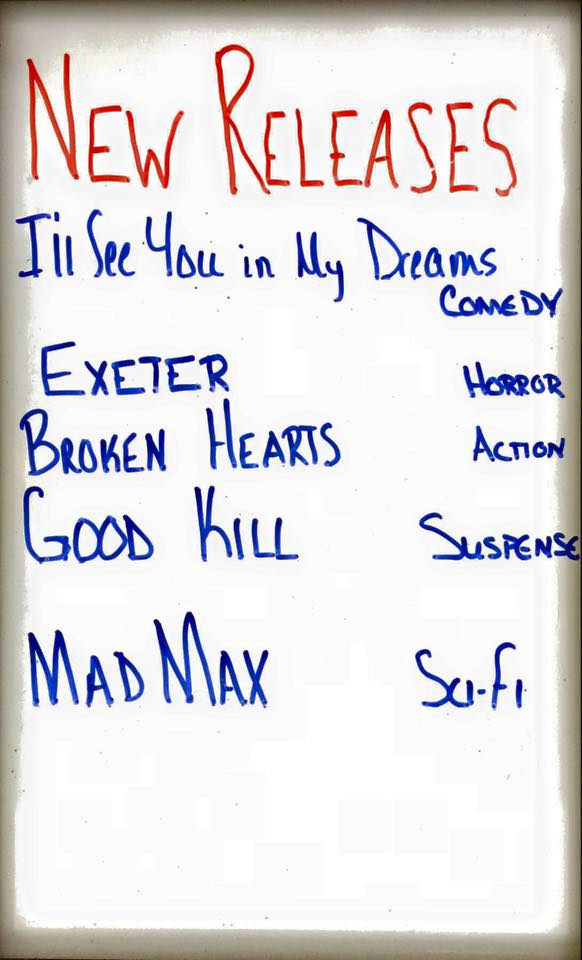 NEW RELEASES
I'll See You in My Dreams
COMEDY
EXETER HORROR
BROKEN HEARTS ACTION
GOOD KILL SUSPENSE
MAD MAX SCI-FI